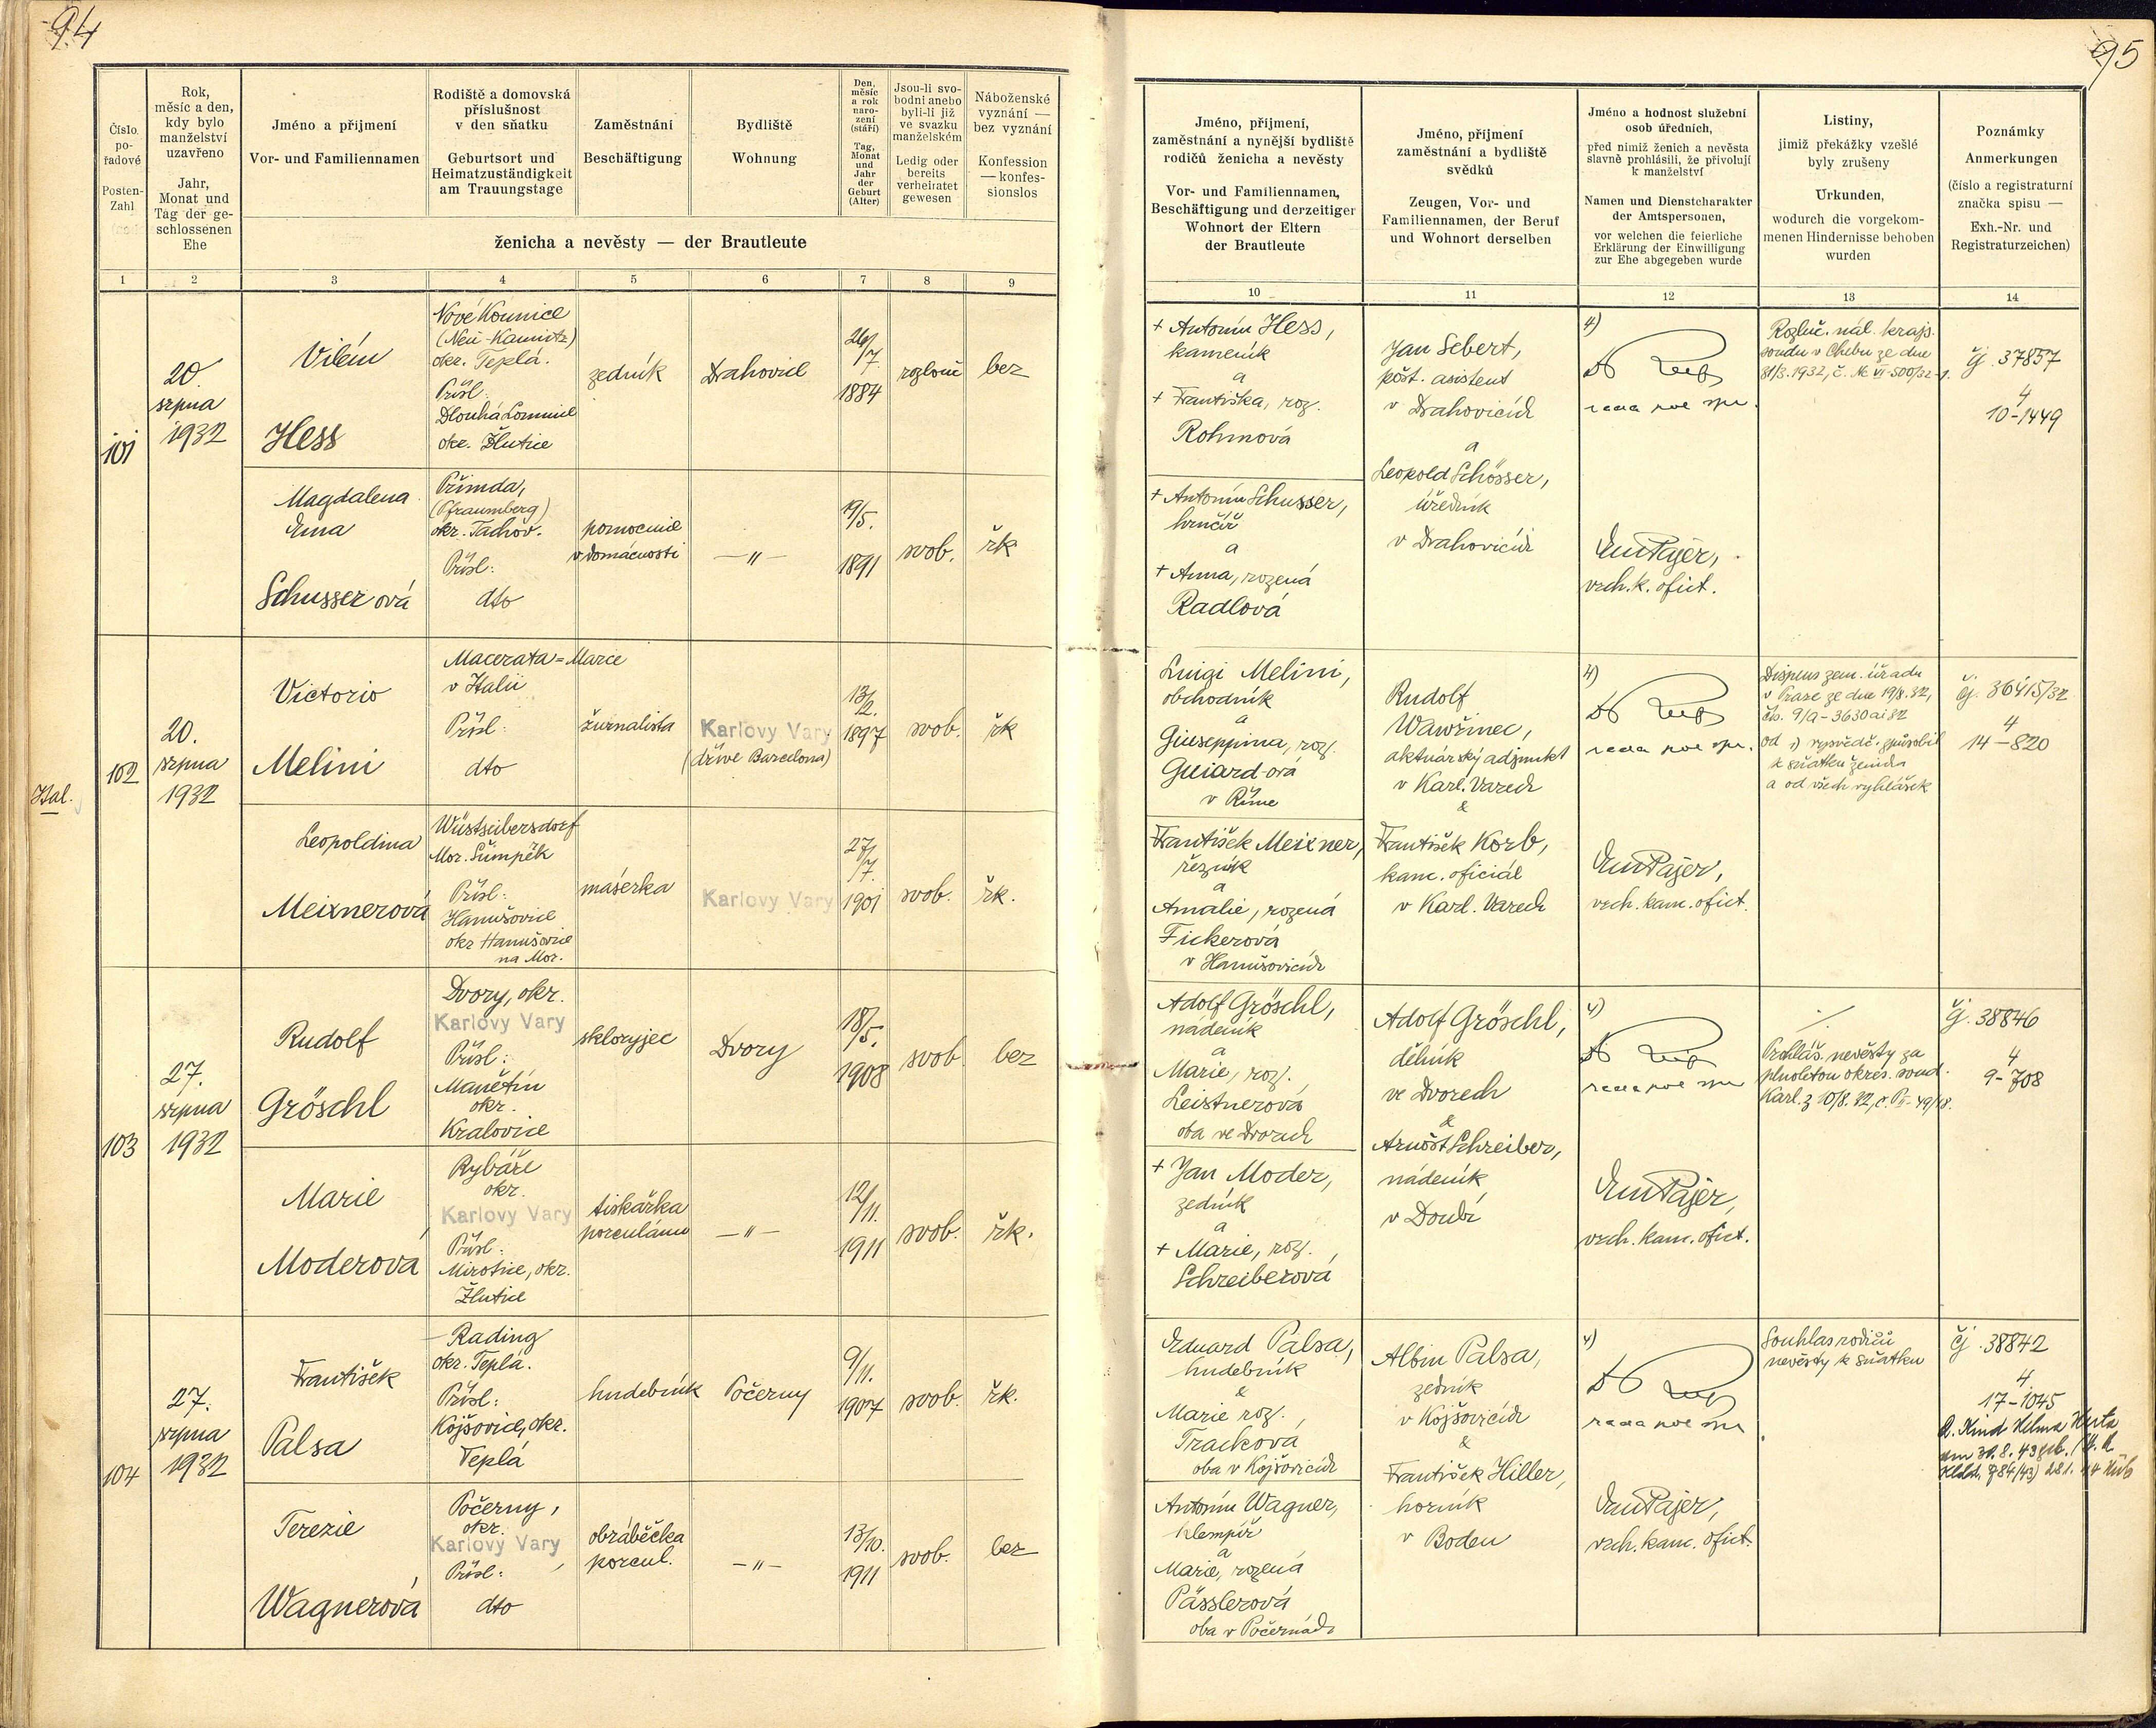 94
Číslo pořadové
Posten-Zahl
Rok, měsíc a den, kdy bylo manželství uzavřeno
Jahr, Monat und Tag der geschlossenen Ehe
Jméno a příjmení
Vor- und Familiennamen
Rodiště a domovská příslušnost v den sňatku
Geburtsort und Heimatzuständigkeit am Trauungstage
Zaměstnání
Beschäftigung
Bydliště
Wohnung
Den, měsíc a rok narození (stáří)
Tag, Monat und Jahr der Geburt (Alter)
Jsou-li svobodni anebo byli-li již ve svazku manželském
Ledig oder bereits verheiratet gewesen
Náboženské vyznání — bez vyznání
Konfession — konfessionslos
ženicha a nevěsty — der Brautleute
1 2 3 4 5 6 7 8 9
101
20.
srpna
1932
Vilém
Hess
Nové Kounice
(Neu-Kaunitz)
okr. Teplá.
Přísl.:
Dlouhá Lomnice
okr. Žlutice
zedník
Drahovice
26/7.
1884
rozlouč
bez
Magdalena
Ema
Schusserová
Přimda,
(Pfraumberg)
okr. Tachov.
Přísl:
dto
pomocnice
v domácnosti
—"—
19/5.
1891
svob.
řk
Ital.
102
20.
srpna
1932
Victorio
Melini
Macerata = Marce
v Italii
Přísl:
dto
žurnalista
Karlovy Vary
(dříve Barcelona)
13/2.
1897
svob.
řk
Leopoldina
Meixnerová
Wüstseibersdorf
Mor. Šumperk
Přísl:
Hanušovice
okr Hanušovice
na Mor.
masérka
Karlovy Vary
27/7.
1901
svob.
řk.
103
27.
srpna
1932
Rudolf
Gröschl
Dvory, okr.
Karlovy Vary
Přísl:
Manětín
okr.
Kralovice
skloryjec
Dvory
18/5.
1908
svob
bez
Marie
Moderová
Rybáře
okr.
Karlovy Vary
Přísl:
Mirotice, okr.
Žlutice
tiskařka
porculánu
—"—
12/11.
1911
svob.
řk.
104
27.
srpna
1932
František
Palsa
Rading
okr. Teplá.
Přísl:
Kojšovice, okr.
Teplá
hudebník
Počerny
9/11.
1907
svob.
řk.
Terezie
Wagnerová
Počerny,
okr.
Karlovy Vary
Přísl:
dto
obráběčka
porcul.
—"—
13/10.
1911
svob.
bez
95
Jméno, příjmení, zaměstnání a nynější bydliště rodičů ženicha a nevěsty
Vor- und Familiennamen, Beschäftigung und derzeitiger Wohnort der Eltern der Brautleute
Jméno, příjmení zaměstnání a bydliště svědků
Zeugen, Vor- und Familiennamen, der Beruf und Wohnort derselben
Jméno a hodnost služební osob úředních,
před nimiž ženich a nevěsta slavně prohlásili, že přivolují k manželství
Namen und Dienstcharakter der Amtspersonen,
vor welchen die feierliche Erklärung der Einwilligung zur Ehe abgegeben wurde
Listiny,
jimiž překážky vzešlé byly zrušeny
Urkunden,
wodurch die vorgekommenen Hindernisse behoben wurden
Poznámky
Anmerkungen
(číslo a registraturní značka spisu —
Exh.-Nr. und Registraturzeichen)
10 11 12 13 14
+ Antonín Hess,
kameník
a
+ Františka, roz.
Rohmová
+ Antonín Schusser,
hrnčíř
a
+ Anna, rozená
Radlová
Jan Sebert,
pošt. asistent
v Drahovicích
a
Leopold Schösser,
úředník
v Drahovicích
4)
Em Pajer,
vrch. k. ofict.
Rozluč. nál. krajs.
soudu v Chebu ze dne
31/3. 1932, č. Nc VI-500/32-1.
Čj. 37857
4
10-1449
Luigi Melini,
obchodník
a
Giuseppina, roz.
Guiard-ová
v Římě
František Meixner,
řezník
a
Amalie, rozená
Fickerová
v Hanušovicích
Rudolf
Wawřinec,
aktuárský adjunkt
v Karl. Varech
&
František Korb,
kanc. oficiál
v Karl. Varech
4)
Em Pajer,
vrch. kanc. ofict.
Dispens zem. úřadu
v Praze ze dne 19/8.32,
čís. 9/a-3630 ai 32
od 1) vysvědč. způsobil
k sňatku ženicha
a od všech vyhlášek
Čj. 36415/32
4
14-820
Adolf Gröschl,
nádeník
a
Marie, roz.
Leistnerová
oba ve Dvorech
+ Jan Moder,
zedník
a
+ Marie, roz.
Schreiberová
Adolf Gröschl,
dělník
ve Dvorech
&
Arnošt Schreiber,
nádeník
v Doubí
4)
Em Pajer,
vrch. kanc. ofict.
Prohláš. nevěsty za
plnoletou okres. soud.
Karl. z 10/8. 32,
Čj. 38846
4
9-708
Eduard Palsa,
hudebník
&
Marie roz.
Trackova
oba v Kojšovicích
Antonín Wagner,
klempíř
a
Marie, rozená
Pässlerová
oba v Počernách
Albin Palsa,
zedník
v Kojšovicích
&
František Hiller,
horník
v Boden
4)
Em Pajer,
vrch. kanc. ofict.
Souhlas rodičů
nevěsty k sňatku
Čj. 38842
4
17-1045
Kind Helma Herta
am 30.8.43 geb.